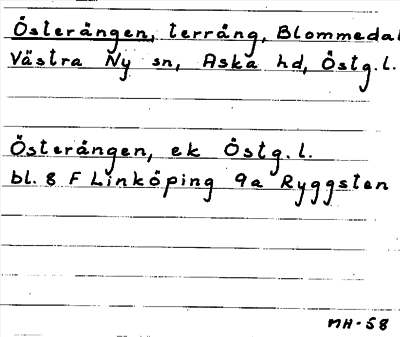 Österängen, terräng, Blommedal
Västra Ny sn, Aska hd, Östg.l.
Österängen, ek Östg.l.
bl. 8 F Linköping 9a Ryggsten
MH-58